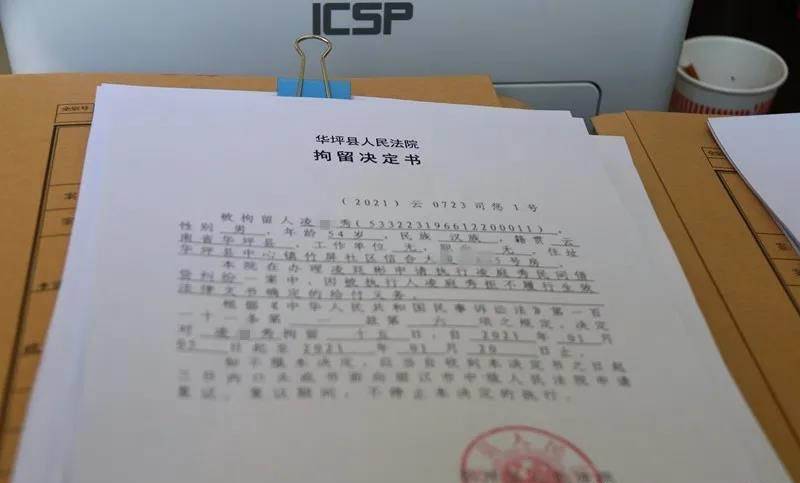 ICSP
华坪县人民法院
拘留决定书
(2021)云 0723 司惩 1 号
被拘留人凌 秀(533223196612200011),
性别 男,年龄 54 岁,民族 汉族,籍贯 云
南省华坪县,工作单位 无,职 无,住址
华坪县中心镇竹屏社区信合大 5号房。
本院在办理凌 彬申请执行凌庭秀民间借
贷纠纷一案中,因被执行人凌庭秀拒不履行生效
法律文书确定的给付义务。
根据《中华人民共和国民事诉讼法》第一百
一十一条第 一 款第 六 项之规定,决定
对 凌 秀拘留 十五日,自 2021 年 01 月
日起至 2021 年 01 月 20 日止。
如不服本决定,应当自收到本决定书之日起
三日内口头或书面向丽江市中级人民法院申请
复议。复议期间,不停止本决定的执行。